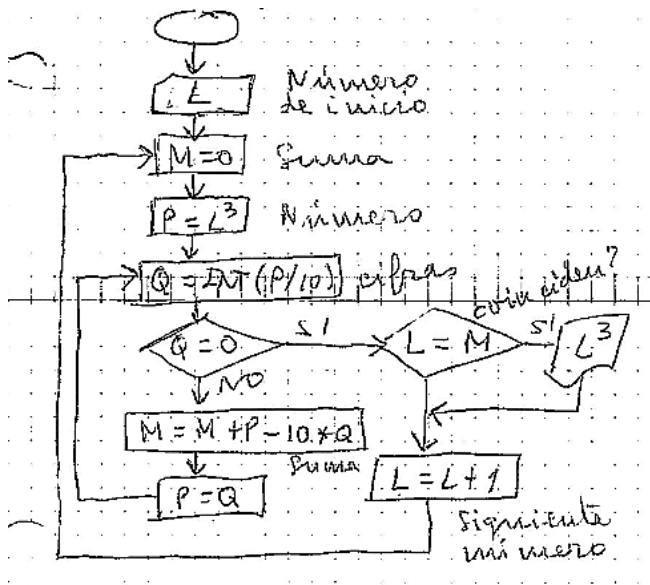 L
Número
de inicio
M=0 Suma
P=L³ Número
Q=ENT(P/10) cifras
coinciden?
Q=0 SI L=M SI L³
NO
M=M+P-10*Q
Suma
P=Q L=L+1
Siguiente
número